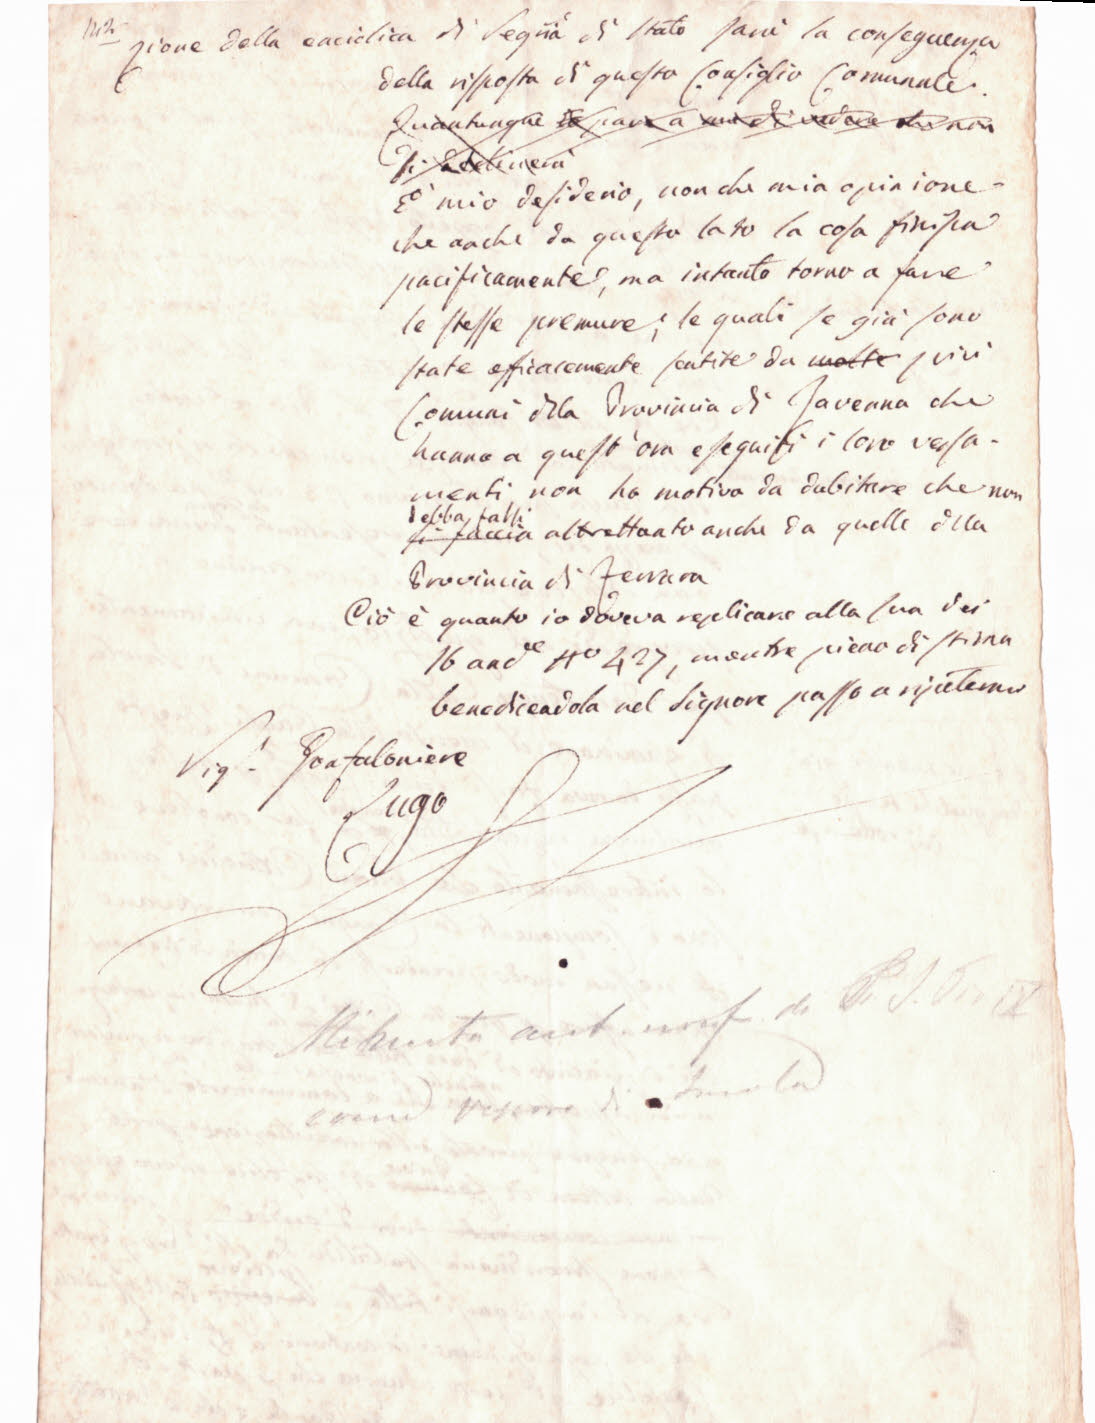 zione della enciclica di Segria di Stato sarà la conseguenza
della risposta di questo Consiglio Comunale.
Quantunque a me di vedere che non
si
E' mio desiderio, non che mia opinione
che anche da questo lato la cosa finisca
pacificamente, ma intanto torno a fare
le stesse premure; le quali se già sono
state efficacemente sentite da molte più
Comuni dlla Provincia di Ravenna che
hanno a quest'ora eseguiti i loro versa-
menti, non ho motivo da dubitare che non
debba farsi
si faccia altrettanto anche da quelle dlla
Provincia di Ferrara
Ciò è quanto io doveva replicare alla sua dei
16 andte No 427, mentre pieno di stima
benedicendola nel Signore passo a ripetermi
Sigr Gonfaloniere
Lugo
Minuta aut. di S. S. Pio IX
vescovo di Imola